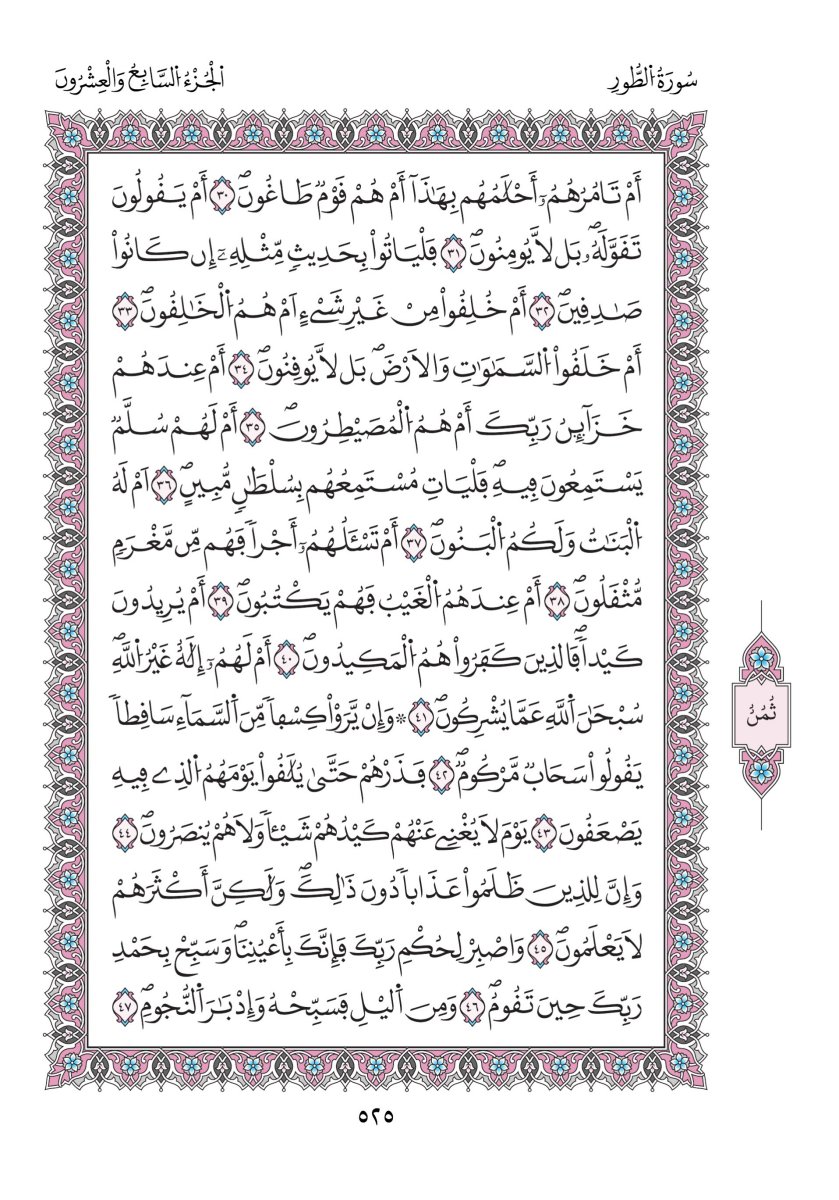 سُورَةُ اُ۬لطُّورِ
اَ۬لْجُزْءُ اُ۬لسَّابِعُ وَالْعِشْرُونَ
أَمْ تَامُرُهُمُۥٓ أَحْلَٰمُهُم بِهَٰذَآ أَمْ هُمْ قَوْمٞ طَاغُونَۖ ٣٠ أَمْ يَقُولُونَ
تَقَوَّلَهُۥۖ بَل لَّا يُومِنُونَۖ ٣١ فَلْيَاتُواْ بِحَدِيثٖ مِّثْلِهِۦٓ إِن كَانُواْ
صَٰدِقِينَۖ ٣٢ أَمْ خُلِقُواْ مِنْ غَيْرِ شَےْءٍ اَمْ هُمُ اُ۬لْخَٰلِقُونَۖ ٣٣
أَمْ خَلَقُواْ اُ۬لسَّمَٰوَٰتِ وَالَارْضَۖ بَل لَّا يُوقِنُونَۖ ٣٤ أَمْ عِندَهُمْ
خَزَآئِنُ رَبِّكَ أَمْ هُمُ اُ۬لْمُصَيْطِرُونَۖ ٣٥ أَمْ لَهُمْ سُلَّمٞ
يَسْتَمِعُونَ فِيهِۖ فَلْيَاتِ مُسْتَمِعُهُم بِسُلْطَٰنٖ مُّبِينٍۖ ٣٦ اَمْ لَهُ
اُ۬لْبَنَٰتُ وَلَكُمُ اُ۬لْبَنُونَۖ ٣٧ أَمْ تَسْـَٔلُهُمُۥٓ أَجْراٗ فَهُم مِّن مَّغْرَمٖ
مُّثْقَلُونَۖ ٣٨ أَمْ عِندَهُمُ اُ۬لْغَيْبُ فَهُمْ يَكْتُبُونَۖ ٣٩ أَمْ يُرِيدُونَ
كَيْداٗۖ فَالذِينَ كَفَرُواْ هُمُ اُ۬لْمَكِيدُونَۖ ٤٠ أَمْ لَهُمُۥٓ إِلَٰهٌ غَيْرُ اُ۬للَّهِۖ
سُبْحَٰنَ اَ۬للَّهِ عَمَّا يُشْرِكُونَۖ ٤١ ۞ وَإِنْ يَّرَوْاْ كِسْفاٗ مِّنَ اَ۬لسَّمَآءِ سَاقِطاٗ
يَقُولُواْ سَحَابٞ مَّرْكُومٞۖ ٤٢ فَذَرْهُمْ حَتَّىٰ يُلَٰقُواْ يَوْمَهُمُ اُ۬لذِے فِيهِ
يَصْعَقُونَ ٤٣ يَوْمَ لَا يُغْنِے عَنْهُمْ كَيْدُهُمْ شَيْـٔاٗ وَلَا هُمْ يُنصَرُونَۖ ٤٤
وَإِنَّ لِلذِينَ ظَلَمُواْ عَذَاباٗ دُونَ ذَٰلِكَۖ وَلَٰكِنَّ أَكْثَرَهُمْ
لَا يَعْلَمُونَۖ ٤٥ وَاصْبِرْ لِحُكْمِ رَبِّكَ فَإِنَّكَ بِأَعْيُنِنَاۖ وَسَبِّحْ بِحَمْدِ
رَبِّكَ حِينَ تَقُومُۖ ٤٦ وَمِنَ اَ۬ليْلِ فَسَبِّحْهُ وَإِدْبَٰرَ اَ۬لنُّجُومِۖ ٤٧
ثُمُنٌ
٥٢٥